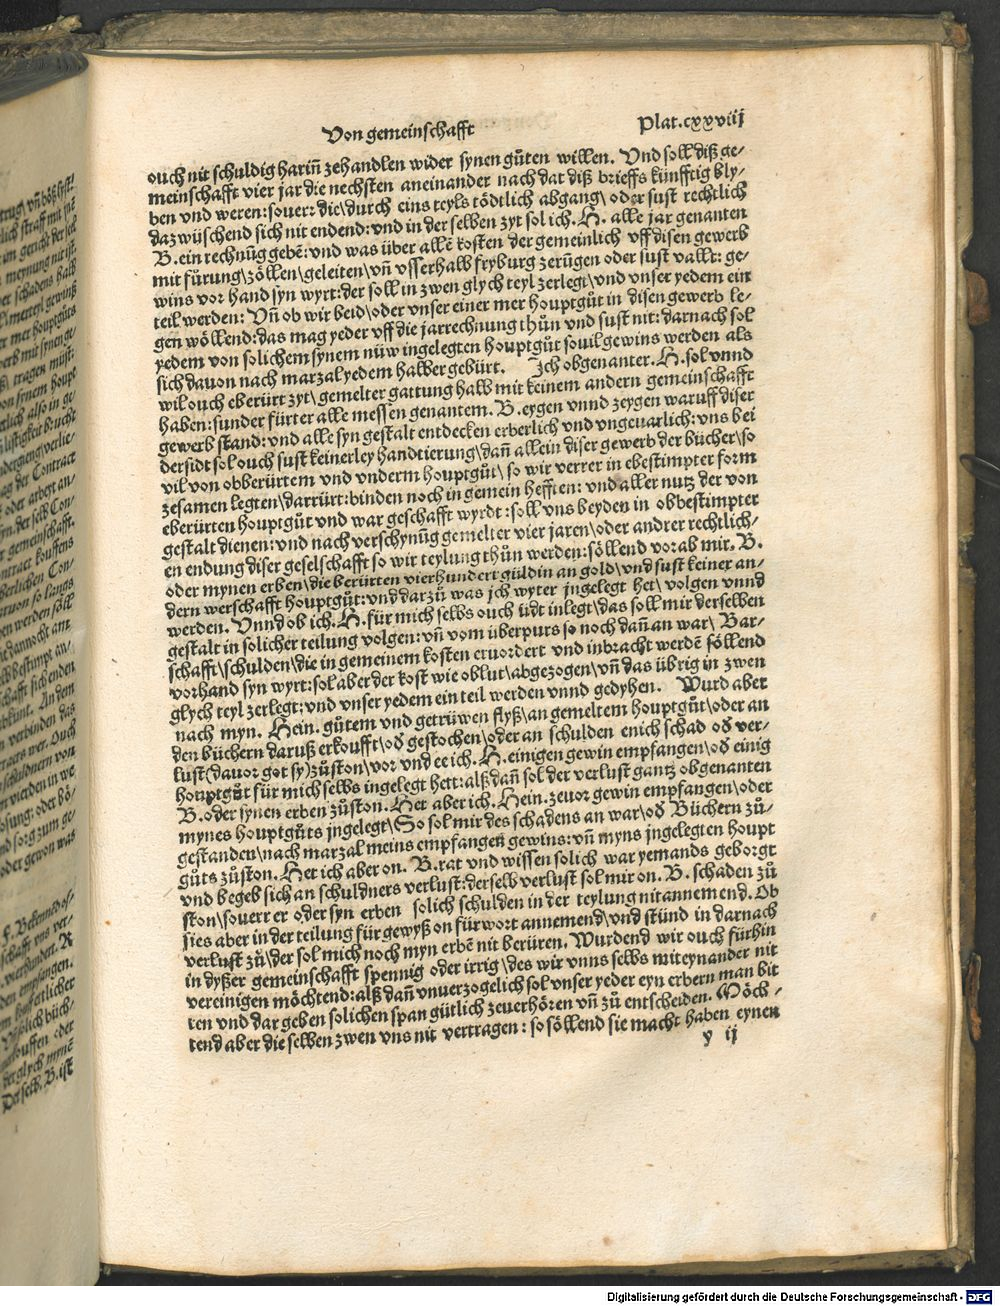 Von gemeinschafft
Plat.cxxviij
ouch nit schuldig harin̄ zehandlen wider synen gůten willen. Vnd soll diß ge⸗
meinschafft vier jar die nechsten aneinander nach dat diß brieffs künfftig bly⸗
ben vnd weren: souerr die\durch eins teyls tödtlich abgang\ oder sust rechtlich
dazwüschend sich nit endend: vnd in der selben zyt sol ich. H. alle jar genanten
B. ein rechnūg gebē: vnd was über allē kosten der gemeinlich vff disen gewerb
mit fürung\zöllen\geleiten\vn̄ vsserhalb fryburg zerūgen oder sust vallt: ge⸗
wins vor hand syn wyrt: der soll in zwen glych teyl zerlegt\vnd vnser yedem ein
teil werden: Vn̄ ob wir beid\oder vnser einer mer houptgůt in disen gewerb le⸗
gen wöllend: das mag yeder vff die jarrechnung thůn vnd sust nit: darnach sol
yedem von solichem synem nüw ingelegten houptgůt souil gewins werden als
sich dauon nach marzal yedem halber gebürt. Ich obgenanter. H. sol vnnd
wil ouch eberürt zyt\gemelter gattung halb mit keinem andern gemeinschafft
haben: sunder fürter alle messen genantem. B. eygen vnnd zeygen waruff diser
gewerb stand: vnd alle syn gestalt entdecken erberlich vnd vngeuarlich: vns bei
dersidt sol ouch sust keinerley handtierung\dan̄ allein diser gewerb der bücher\so
vil von obberürtem vnd vnderm houptgůt\ so wir verrer in ebestimpter form
zesamen legten\darrürt: binden noch in gemein hefften: vnd aller nutz der von
eberürten houptgůt vnd war geschafft wyrdt: soll vns beyden in obbestimpter
gestalt dienen: vnd nach verschynūg gemelter vier jaren\oder andrer rechtlich⸗
en endung diser geselschafft so wir teylung thůn werden: söllend vorab mir. B.
oder mynen erben\die berürten vierhundert güldin an gold\vnd sust keiner an⸗
dern werschafft houptgůt: vnd darzů was jch wyter jngelegt het\ volgen vnnd
werden. Vnnd ob ich. H. für mich selbs ouch üdt inlegt\das soll mir derselben
gestalt in solicher teilung volgen: vn̄ vom überpurs so noch dan̄ an war\ Bar⸗
schafft\schulden\die in gemeinem kosten eruordert vnd inbracht werdē söllend
vorhand syn wyrt: sol aber der kost wie oblut\abgezogen\vn̄ das übrig in zwen
glych teyl zerlegt: vnd vnser yedem ein teil werden vnnd gedyhen. Wurd aber
nach myn. Hein. gůtem vnd getrüwen flyß\an gemeltem houptgůt\oder an
den büchern daruß erkoufft\od̄ gestochen\oder an schulden enich schad od̄ ver⸗
lust(dauor got sy)zůston\vor vnd ee ich. H. einigen gewin empfangen\od̄ einig
houptgůt für mich selbs ingelegt hett: alß dan̄ sol der verlust gantz obgenanten
B. oder synen erben zůston. Het aber ich. Hein. zeuor gewin empfangen\oder
mynes houptgůts jngelegt\So sol mir des schadens an war\od̄ Büchern zů⸗
gestanden\nach marzal meins empfangen gewins: vn̄ myns jngelegten houpt
gůts zůston. Het ich aber on. B. rat vnd wissen solich war yemands geborgt
vnd begeb sich an schuldners verlust: derselb verlust sol mir on. B. schaden zů
ston\souerr er oder syn erben solich schulden in der teylung nit annemend. Ob
sies aber in der teilung für gewyß on fürwort annemend\vnd stünd in darnach
verlust zů\der sol mich noch myn erbē nit berüren. Wurdend wir ouch fürhin
in dyßer gemeinschafft spennig oder irrig\des wir vnns selbs miteynander nit
vereinigen möchtend: alß dan̄ vnuerzogelich sol vnser yeder eyn erbern man bit
ten vnd dar geben solichen span gütlich zeuerhören vn̄ zů entscheiden. Möch⸗
tend aber die selben zwen vns nit vertragen: so söllend sie macht haben eynen
y ij
Digitalisierung gefördert durch die Deutsche Forschungsgemeinschaft - DFG